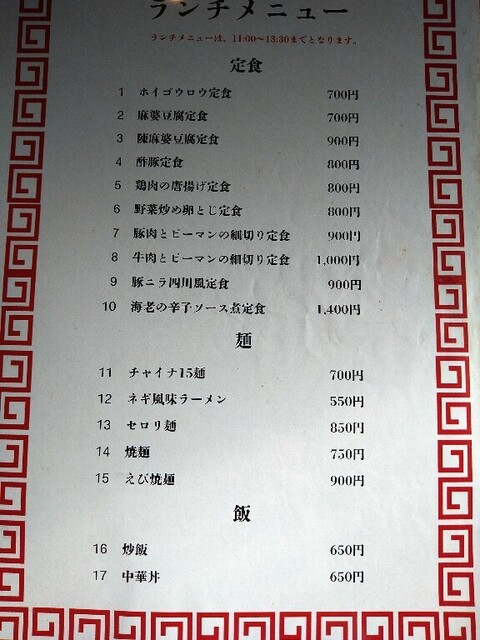 ランチメニュー
ランチメニューは、11:00〜13:30までとなります。
定食
1 ホイゴウロウ定食 700円
2 麻婆豆腐定食 700円
3 陳麻婆豆腐定食 900円
4 酢豚定食 800円
5 鶏肉の唐揚げ定食 800円
6 野菜炒め卵とじ定食 800円
7 豚肉とピーマンの細切り定食 900円
8 牛肉とピーマンの細切り定食 1,000円
9 豚ニラ四川風定食 900円
10 海老の辛子ソース煮定食 1,400円
麺
11 チャイナ15麺 700円
12 ネギ風味ラーメン 550円
13 セロリ麺 850円
14 焼麺 750円
15 えび焼麺 900円
飯
16 炒飯 650円
17 中華丼 650円